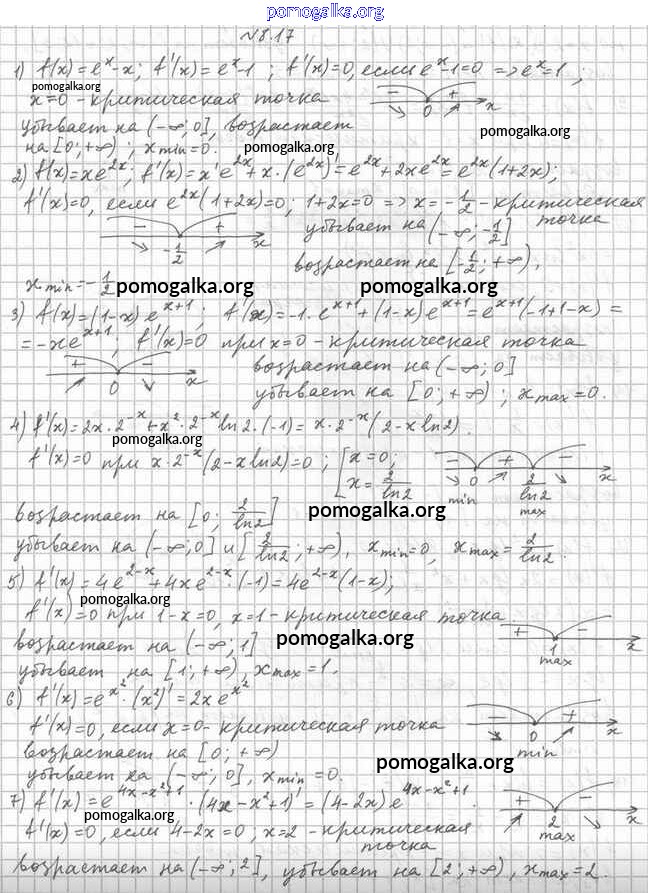 pomogalka.org
№8.17
1) f(x)=eˣ-x; f'(x)=eˣ-1; f'(x)=0, если eˣ-1=0 => eˣ=1;
pomogalka.org
x=0 - критическая точка
- + 0 x
убывает на (-∞;0], возрастает
pomogalka.org
на [0;+∞); x min=0.
pomogalka.org
2) f(x)=xe²ˣ; f'(x)=x'e²ˣ+x·(e²ˣ)'=e²ˣ+2xe²ˣ=e²ˣ(1+2x);
f'(x)=0, если e²ˣ(1+2x)=0; 1+2x=0 => x=-1/2 - критическая
точка
- + -1/2 x
убывает на (-∞;-1/2]
возрастает на [-1/2;+∞),
x min=-1/2
pomogalka.org pomogalka.org
3) f(x)=(1-x)e^(x+1); f'(x)=-1·e^(x+1)+(1-x)e^(x+1)=e^(x+1)(-1+1-x)=
=-xe^(x+1); f'(x)=0 при x=0 - критическая точка
+ - 0 x
возрастает на (-∞;0]
убывает на [0;+∞); x max=0.
4) f'(x)=2x·2^(-x)+x²·2^(-x)ln2·(-1)=x·2^(-x)(2-xln2).
pomogalka.org
f'(x)=0 при x·2^(-x)(2-xln2)=0; [x=0; x=2/ln2
- + - 0 2/ln2 x
min max
возрастает на [0; 2/ln2]
pomogalka.org
убывает на (-∞;0] и [2/ln2;+∞), x min=0, x max=2/ln2.
5) f'(x)=4e^(2-x)+4xe^(2-x)·(-1)=4e^(2-x)(1-x);
pomogalka.org
f'(x)=0 при 1-x=0, x=1 - критическая точка
+ - 1 x
max
возрастает на (-∞;1]
pomogalka.org
убывает на [1;+∞), x max=1.
6) f'(x)=e^(x²)·(x²)'=2xe^(x²)
f'(x)=0, если x=0 - критическая точка
- + 0 x
min
возрастает на [0;+∞)
pomogalka.org
убывает на (-∞;0], x min=0.
7) f'(x)=e^(4x-x²+1)·(4x-x²+1)'=(4-2x)e^(4x-x²+1).
pomogalka.org
f'(x)=0, если 4-2x=0; x=2 - критическая
точка
+ - 2 x
max
возрастает на (-∞;2], убывает на [2;+∞), x max=2.